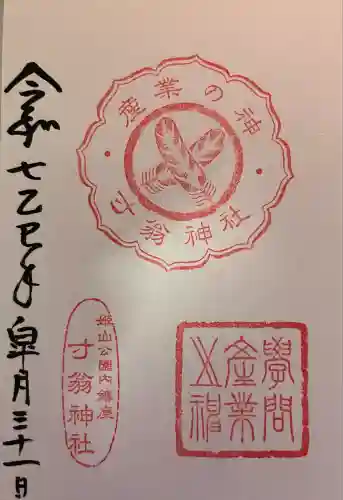 令和七乙巳年皐月三十一日
産業の神
寸翁神社
姫山公園内鎮座
寸翁神社
學問
産業
之神